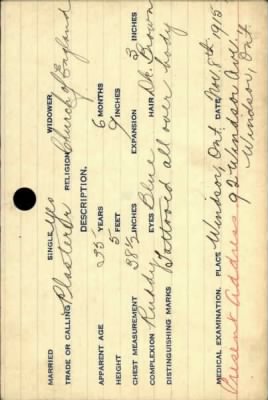 MARRIED SINGLE Yes WIDOWER
TRADE OR CALLING Plasterer RELIGION Church of England
DESCRIPTION.
APPARENT AGE 35 YEARS 6 MONTHS
HEIGHT 5 FEET 9 INCHES
CHEST MEASUREMENT 38½ INCHES EXPANSION 3 INCHES
COMPLEXION Ruddy EYES Blue HAIR Dk. Brown
DISTINGUISHING MARKS Tattooed all over body
MEDICAL EXAMINATION. PLACE Windsor, Ont. DATE Nov. 8th 1915
Present Address 92 Windsor Ave.,
Windsor, Ont